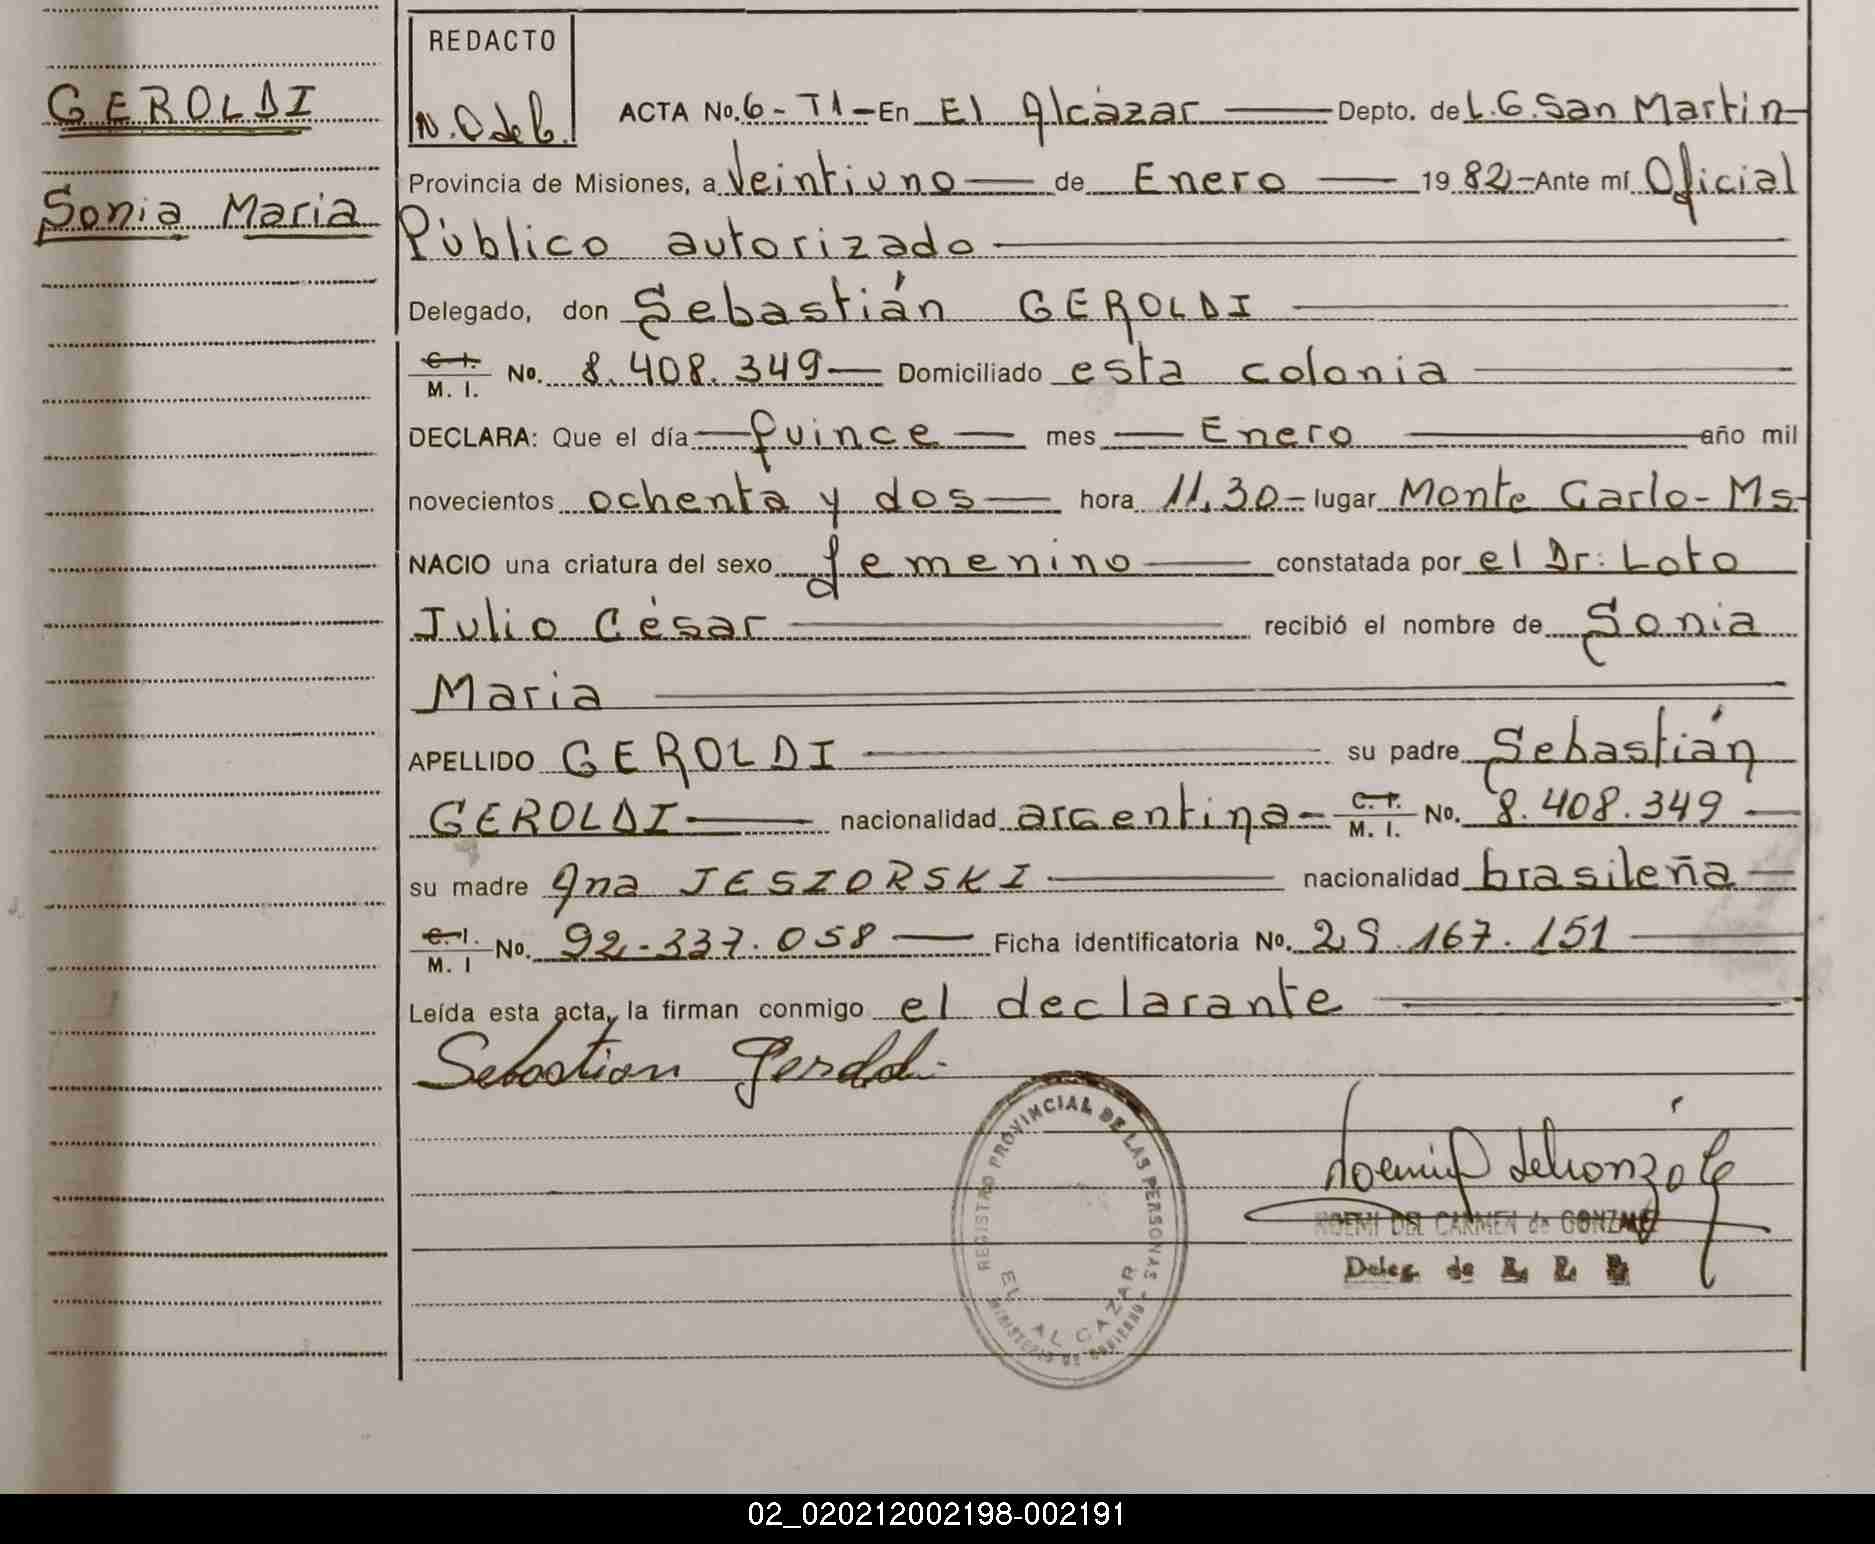 REDACTO
N. C de G.
GEROLDI
Sonia Maria
ACTA No. 6 - T1 - En El Alcázar Depto. de L.G. San Martin
Provincia de Misiones, a Veintiuno de Enero 1982 - Ante mí Oficial
Público autorizado
Delegado, don Sebastián GEROLDI
C. I.
M. I. No. 8.408.349 Domiciliado esta colonia
DECLARA: Que el día Quince mes Enero año mil
novecientos ochenta y dos hora 11,30 - lugar Monte Carlo - Ms
NACIO una criatura del sexo femenino constatada por el Dr: Loto
Julio César recibió el nombre de Sonia
Maria
APELLIDO GEROLDI su padre Sebastián
GEROLDI nacionalidad argentina - C. I. M. I. No. 8.408.349
su madre Ana JESZORSKI nacionalidad brasileña
C. I. M. I No. 92-337.058 Ficha identificatoria No. 29.167.151
Leída esta acta, la firman conmigo el declarante
Sebastian Geroldi
REGISTRO PROVINCIAL DE LAS PERSONAS
EL ALCAZAR
MINISTERIO DE GOBIERNO
NOEMI DEL CARMEN de GONZALEZ
Deleg. de
02_020212002198-002191